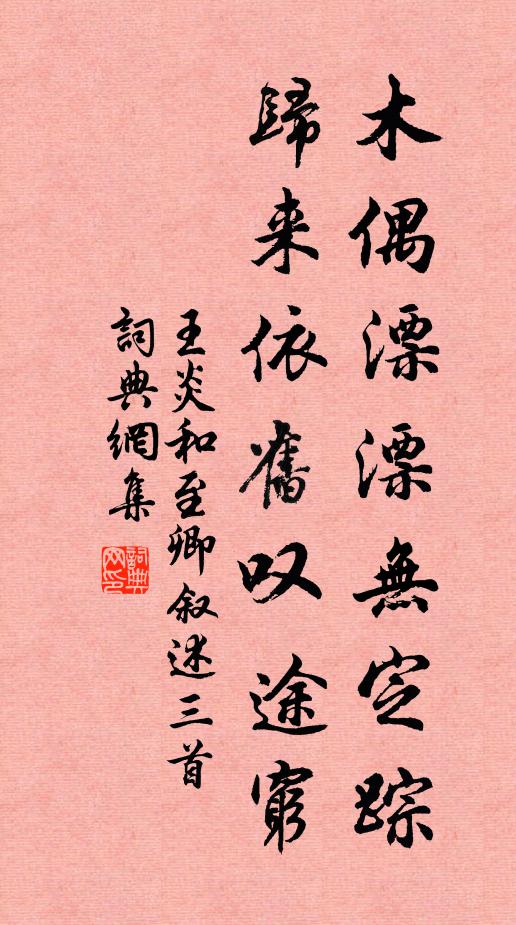 木偶漂漂無定踪
歸来依舊叹途窮
王炎和至卿叙述三首
詞典網集
詞典网印